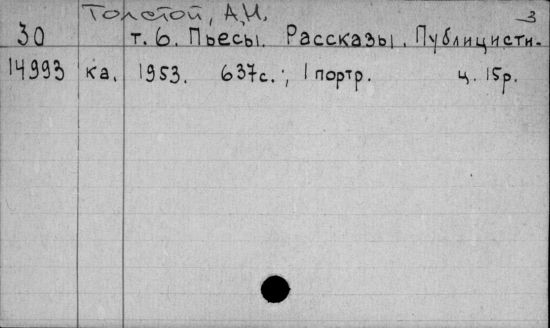 Толстой, А.Н. 3
30 т. 6. Пьесы. Рассказы. Публицисти-
14993 ка. 1953. 637с.; 1 портр. ц. 15р.